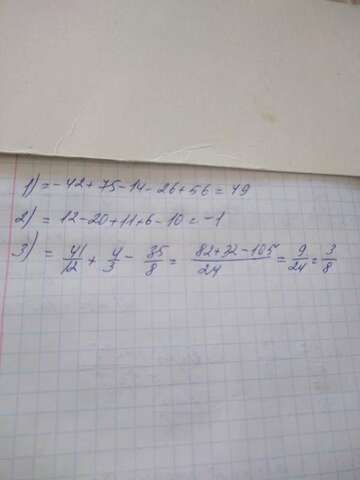 1) = -42+75-14-26+56 = 49
2) = 12-20+11+6-10 = -1
3) = 41/12 + 4/3 - 35/8 = 82+32-105/24 = 9/24 = 3/8